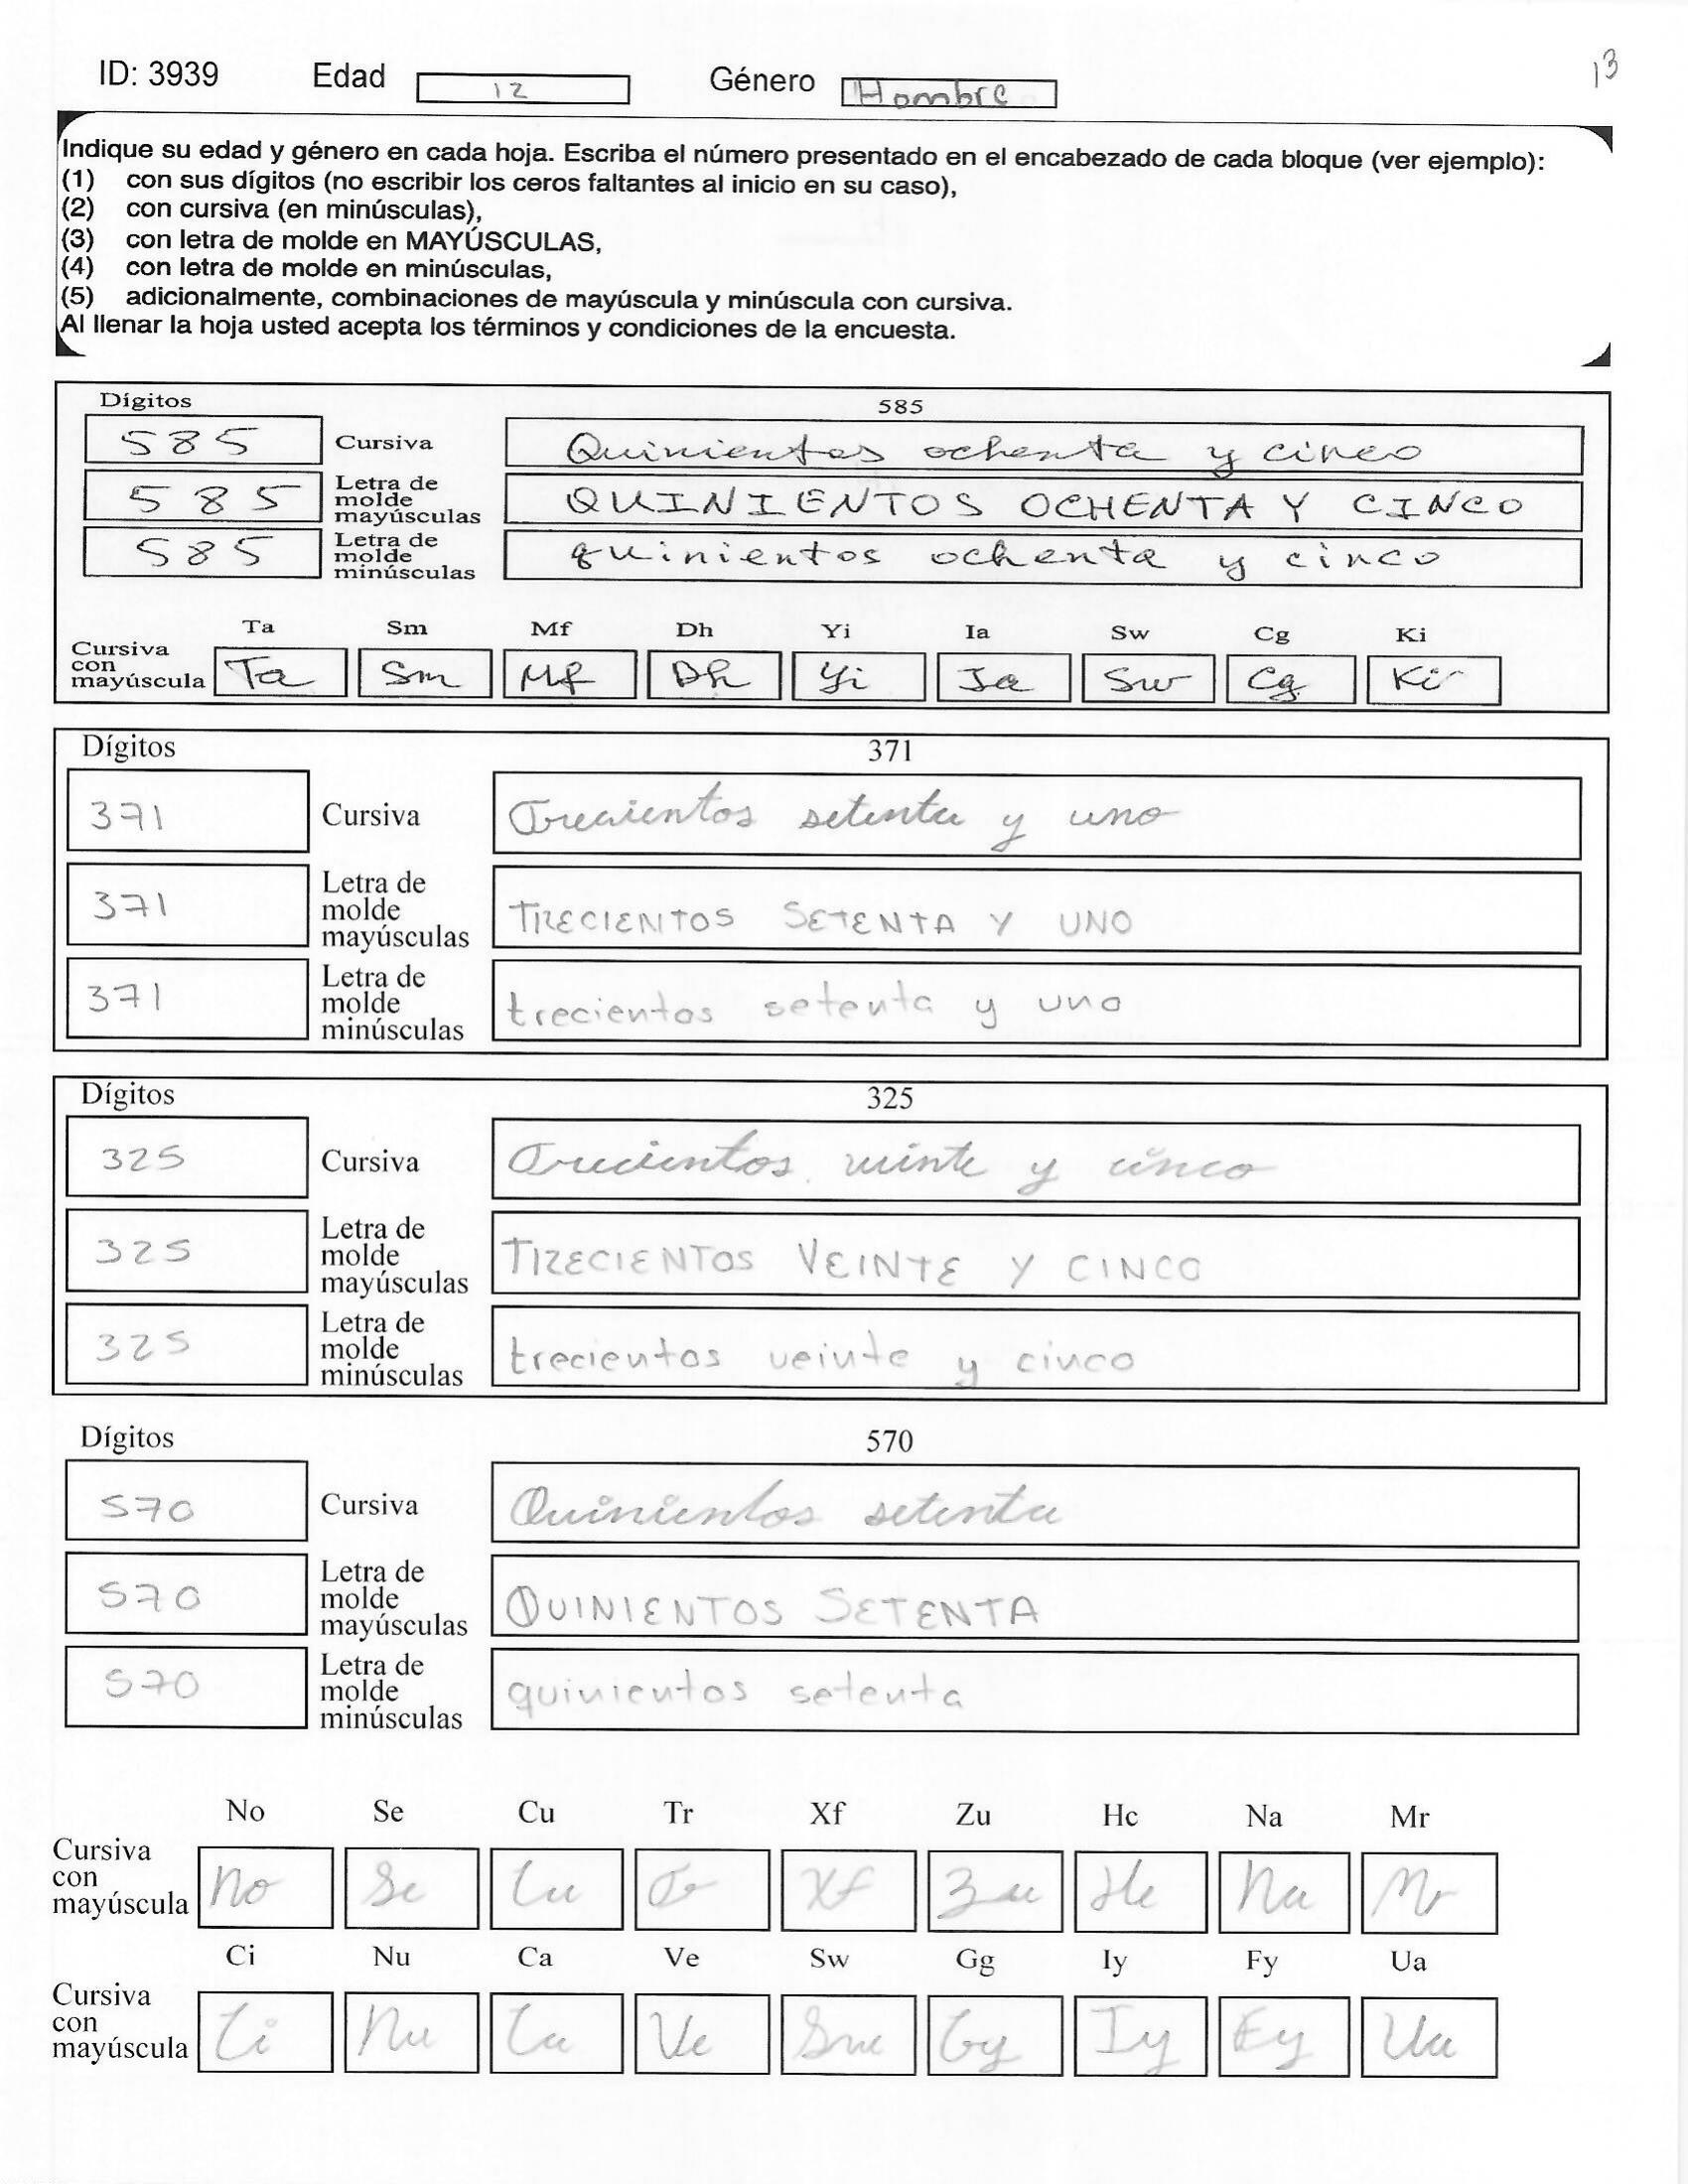 ID: 3939 Edad 12 Género Hombre 13
Indique su edad y género en cada hoja. Escriba el número presentado en el encabezado de cada bloque (ver ejemplo):
(1) con sus dígitos (no escribir los ceros faltantes al inicio en su caso),
(2) con cursiva (en minúsculas),
(3) con letra de molde en MAYÚSCULAS,
(4) con letra de molde en minúsculas,
(5) adicionalmente, combinaciones de mayúscula y minúscula con cursiva.
Al llenar la hoja usted acepta los términos y condiciones de la encuesta.
Dígitos 585
585 Cursiva Quinientos ochenta y cinco
585 Letra de molde mayúsculas QUINIENTOS OCHENTA Y CINCO
585 Letra de molde minúsculas quinientos ochenta y cinco
Ta Sm Mf Dh Yi Ia Sw Cg Ki
Cursiva con mayúscula Ta Sm Mf Dh Yi Ia Sw Cg Ki
Dígitos 371
371 Cursiva Trecientos setenta y uno
371 Letra de molde mayúsculas TRECIENTOS SETENTA Y UNO
371 Letra de molde minúsculas trecientos setenta y uno
Dígitos 325
325 Cursiva Trecientos veinte y cinco
325 Letra de molde mayúsculas TRECIENTOS VEINTE Y CINCO
325 Letra de molde minúsculas trecientos veinte y cinco
Dígitos 570
570 Cursiva Quinientos setenta
570 Letra de molde mayúsculas QUINIENTOS SETENTA
570 Letra de molde minúsculas quinientos setenta
No Se Cu Tr Xf Zu Hc Na Mr
Cursiva con mayúscula No Se Cu Tr Xf Zu He Na Mr
Ci Nu Ca Ve Sw Gg Iy Fy Ua
Cursiva con mayúscula Ci Nu Ca Ve Sw Gy Iy Fy Ua